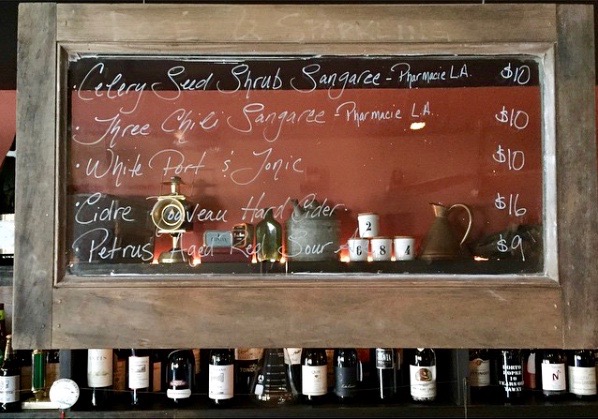 · Celery Seed Shrub Sangaree - Pharmacie L.A. $10
· Three Chili Sangaree - Pharmacie L.A. $10
· White Port & Tonic $10
· Cidre Nouveau Hard Cider $16
· Petrus Aged Red Sour $9
2
6 8 4
N